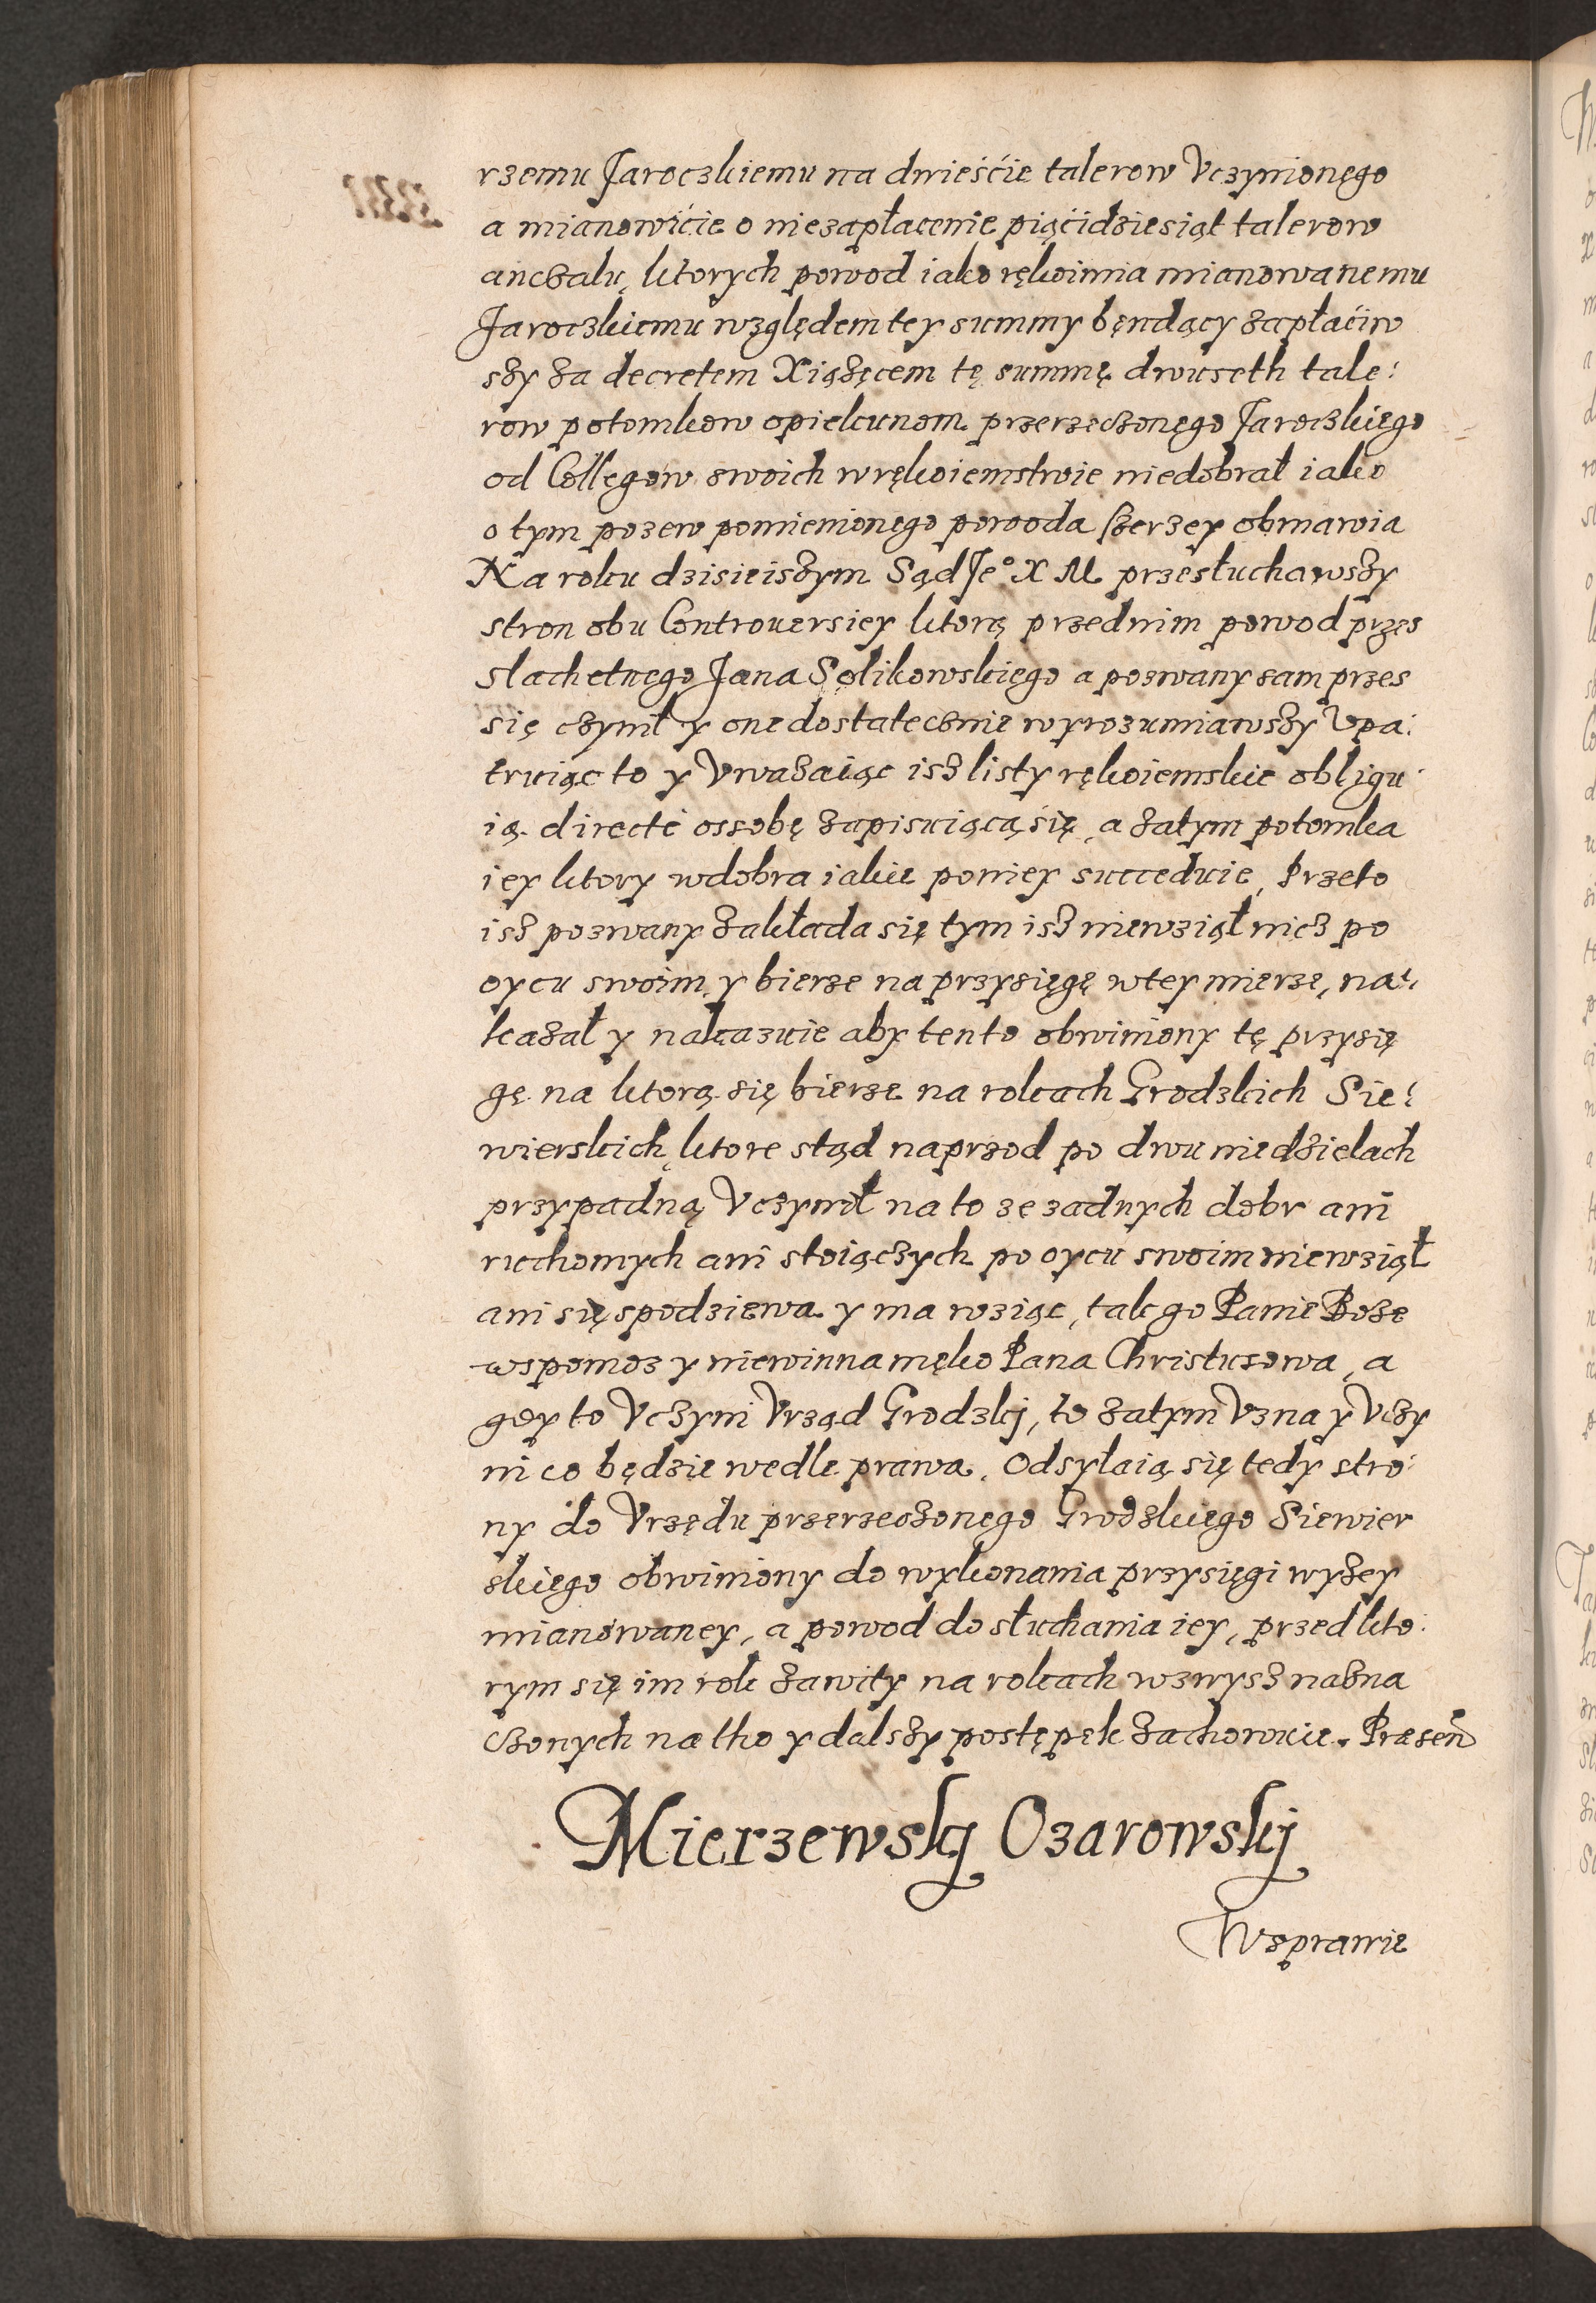 rzemu Jaroczkiemu na dwieśćie talerow Vczynionęgo
a mianowićie o niezapłacenie pięćidziesiąt talerow
anczalu, ktorych powod iako rękoimia mianowanemu
Jaroczkiemu względem tey summy bęndący zapłaćiw
szy za decretem Xiążęcem tę summę dwuseth tale:
row potomkow opiekunom przerzeczonęgo Jaroczkięgo
od Collegow swoich w rękoiemstwie niedobrał iako
o tym pozew pomienionęgo powoda szerzey obmawia
Na roku dzisieiszym Sąd Je° X M przesłuchawszy
stron obu Controuersiey ktorą przednim powod przes
slachetnego Jana Solikowskięgo a pozwany sam przes
się czynił y one dostatecznie wyrozumiawszy Vpa:
truiąc to y Vwazaiąc isz listy rękoiemskie obligu:
ią directe ossobę zapisuiącą się, a zatym potomka
iey ktory w dobra iakie poniey succeduie, Przeto
isz pozwany zakłada się tym isz niewziął nicz po
oycu swoim y bierze na przysięgę wtey mierze, na:
kazał y nakazuie aby tento obwiniony tę przysię
gę na ktorą się bierze na rokach Grodzkich Sie:
wierskich ktore stąd naprzod po dwu niedzielach
przypadną Vczynił na to ze zadnych dobr ani
ruchomych ani stoiączych po oycu swoim niewziął
ani się spodziewa y ma wziąc, tak go Panie Boze
wspomoz y niewinna męko Pana Christusowa, a
gdy to Vczyni Vrząd Grodzkj, to zatym Vzna y Vczy
ni co będzie wedle prawa. Odsyłaią się tedy stro:
ny do Vrzędu przerzeczonego Grodzkięgo Siewier
skięgo obwiniony do wykonania przysięgi wyzey
mianowaney, a powod do słuchania iey, przed kto:
rym się im rok zawity na rokach wzwysz nazna
czonych na tho y dalszy postępek zachowuie. Præsen
Mierzewskj Ozarowskj
Wsprawie